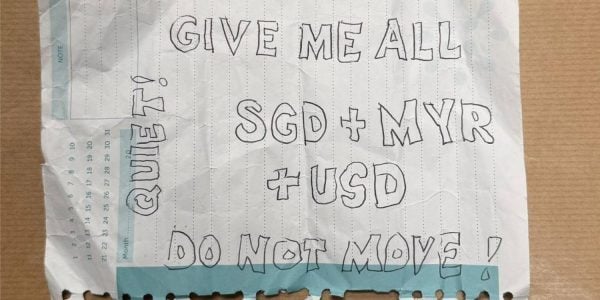 GIVE ME ALL
SGD + MYR
+ USD
DO NOT MOVE!
QUIET!
NOTE
Month
20
1 2 3 4 5 6 7 8 9 10
11 12 13 14 15 16 17 18 19 20
21 22 23 24 25 26 27 28 29 30 31